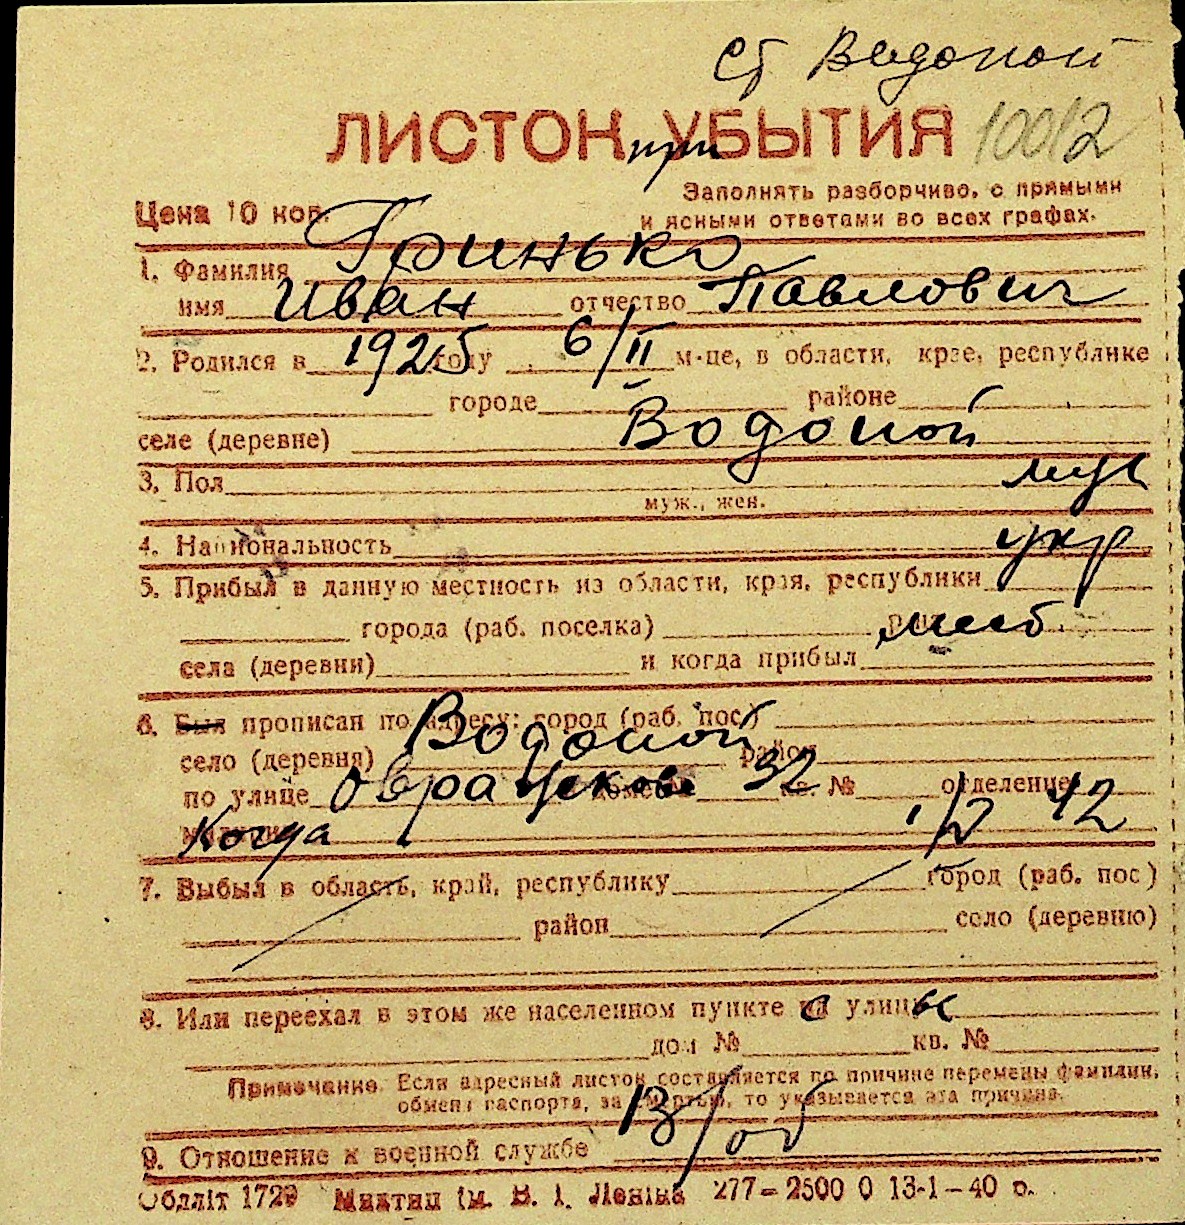 ст Водопой
ЛИСТОК при УБЫТИЯ 10012
Заполнять разборчиво, с прямыми
Цена 10 коп. и ясными ответами во всех графах.
Гринько
1. Фамилия
имя Иван отчество Павлович
2. Родился в 1925 году 6/II м-це, в области, крае, республике
городе районе
селе (деревне) Водопой
3. Пол муж
муж., жен.
4. Национальность укр
5. Прибыл в данную местность из области, края, республики
города (раб. поселка)
села (деревни) и когда прибыл
6. Был прописан по адресу: город (раб. пос.)
село (деревня) Водопой район
по улице доме № 32 кв. № отделение
Когда 42
7. Выбыл в область, край, республику город (раб. пос)
район село (деревню)
8. Или переехал в этом же населенном пункте с улицы
дом № кв. №
Примечание. Если адресный листок составляется по причине перемены фамилии,
обмена паспорта, за смертью, то указывается эта причина.
9. Отношение к военной службе в/об
Обллiт 1729 Миктип iм. В. I. Ленiна 277–2500 0 13-1–40 р.